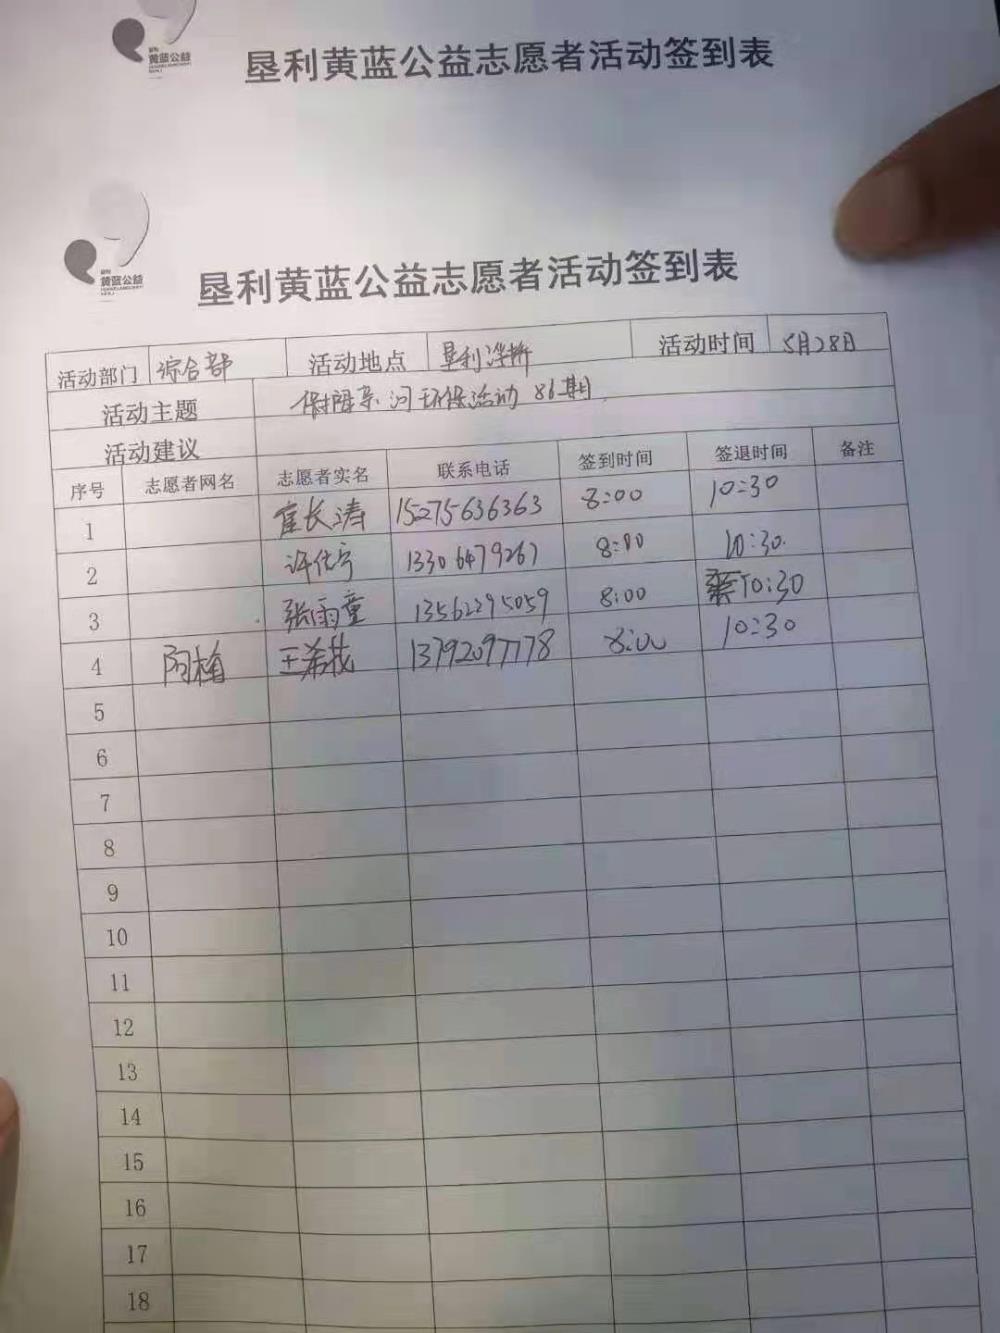 垦利
黄蓝公益
垦利黄蓝公益志愿者活动签到表
垦利
黄蓝公益
垦利黄蓝公益志愿者活动签到表
活动部门 综合部 活动地点 垦利浮桥 活动时间 5月28日
活动主题 保障亲河环保活动 86期
活动建议
序号 志愿者网名 志愿者实名 联系电话 签到时间 签退时间 备注
1 崔长涛 15275636363 8:00 10:30
2 许佳宁 13306479267 8:00 10:30
3 张雨童 13562295059 8:00 10:30
4 阿楠 王希茂 13792097778 8:00 10:30
5
6
7
8
9
10
11
12
13
14
15
16
17
18